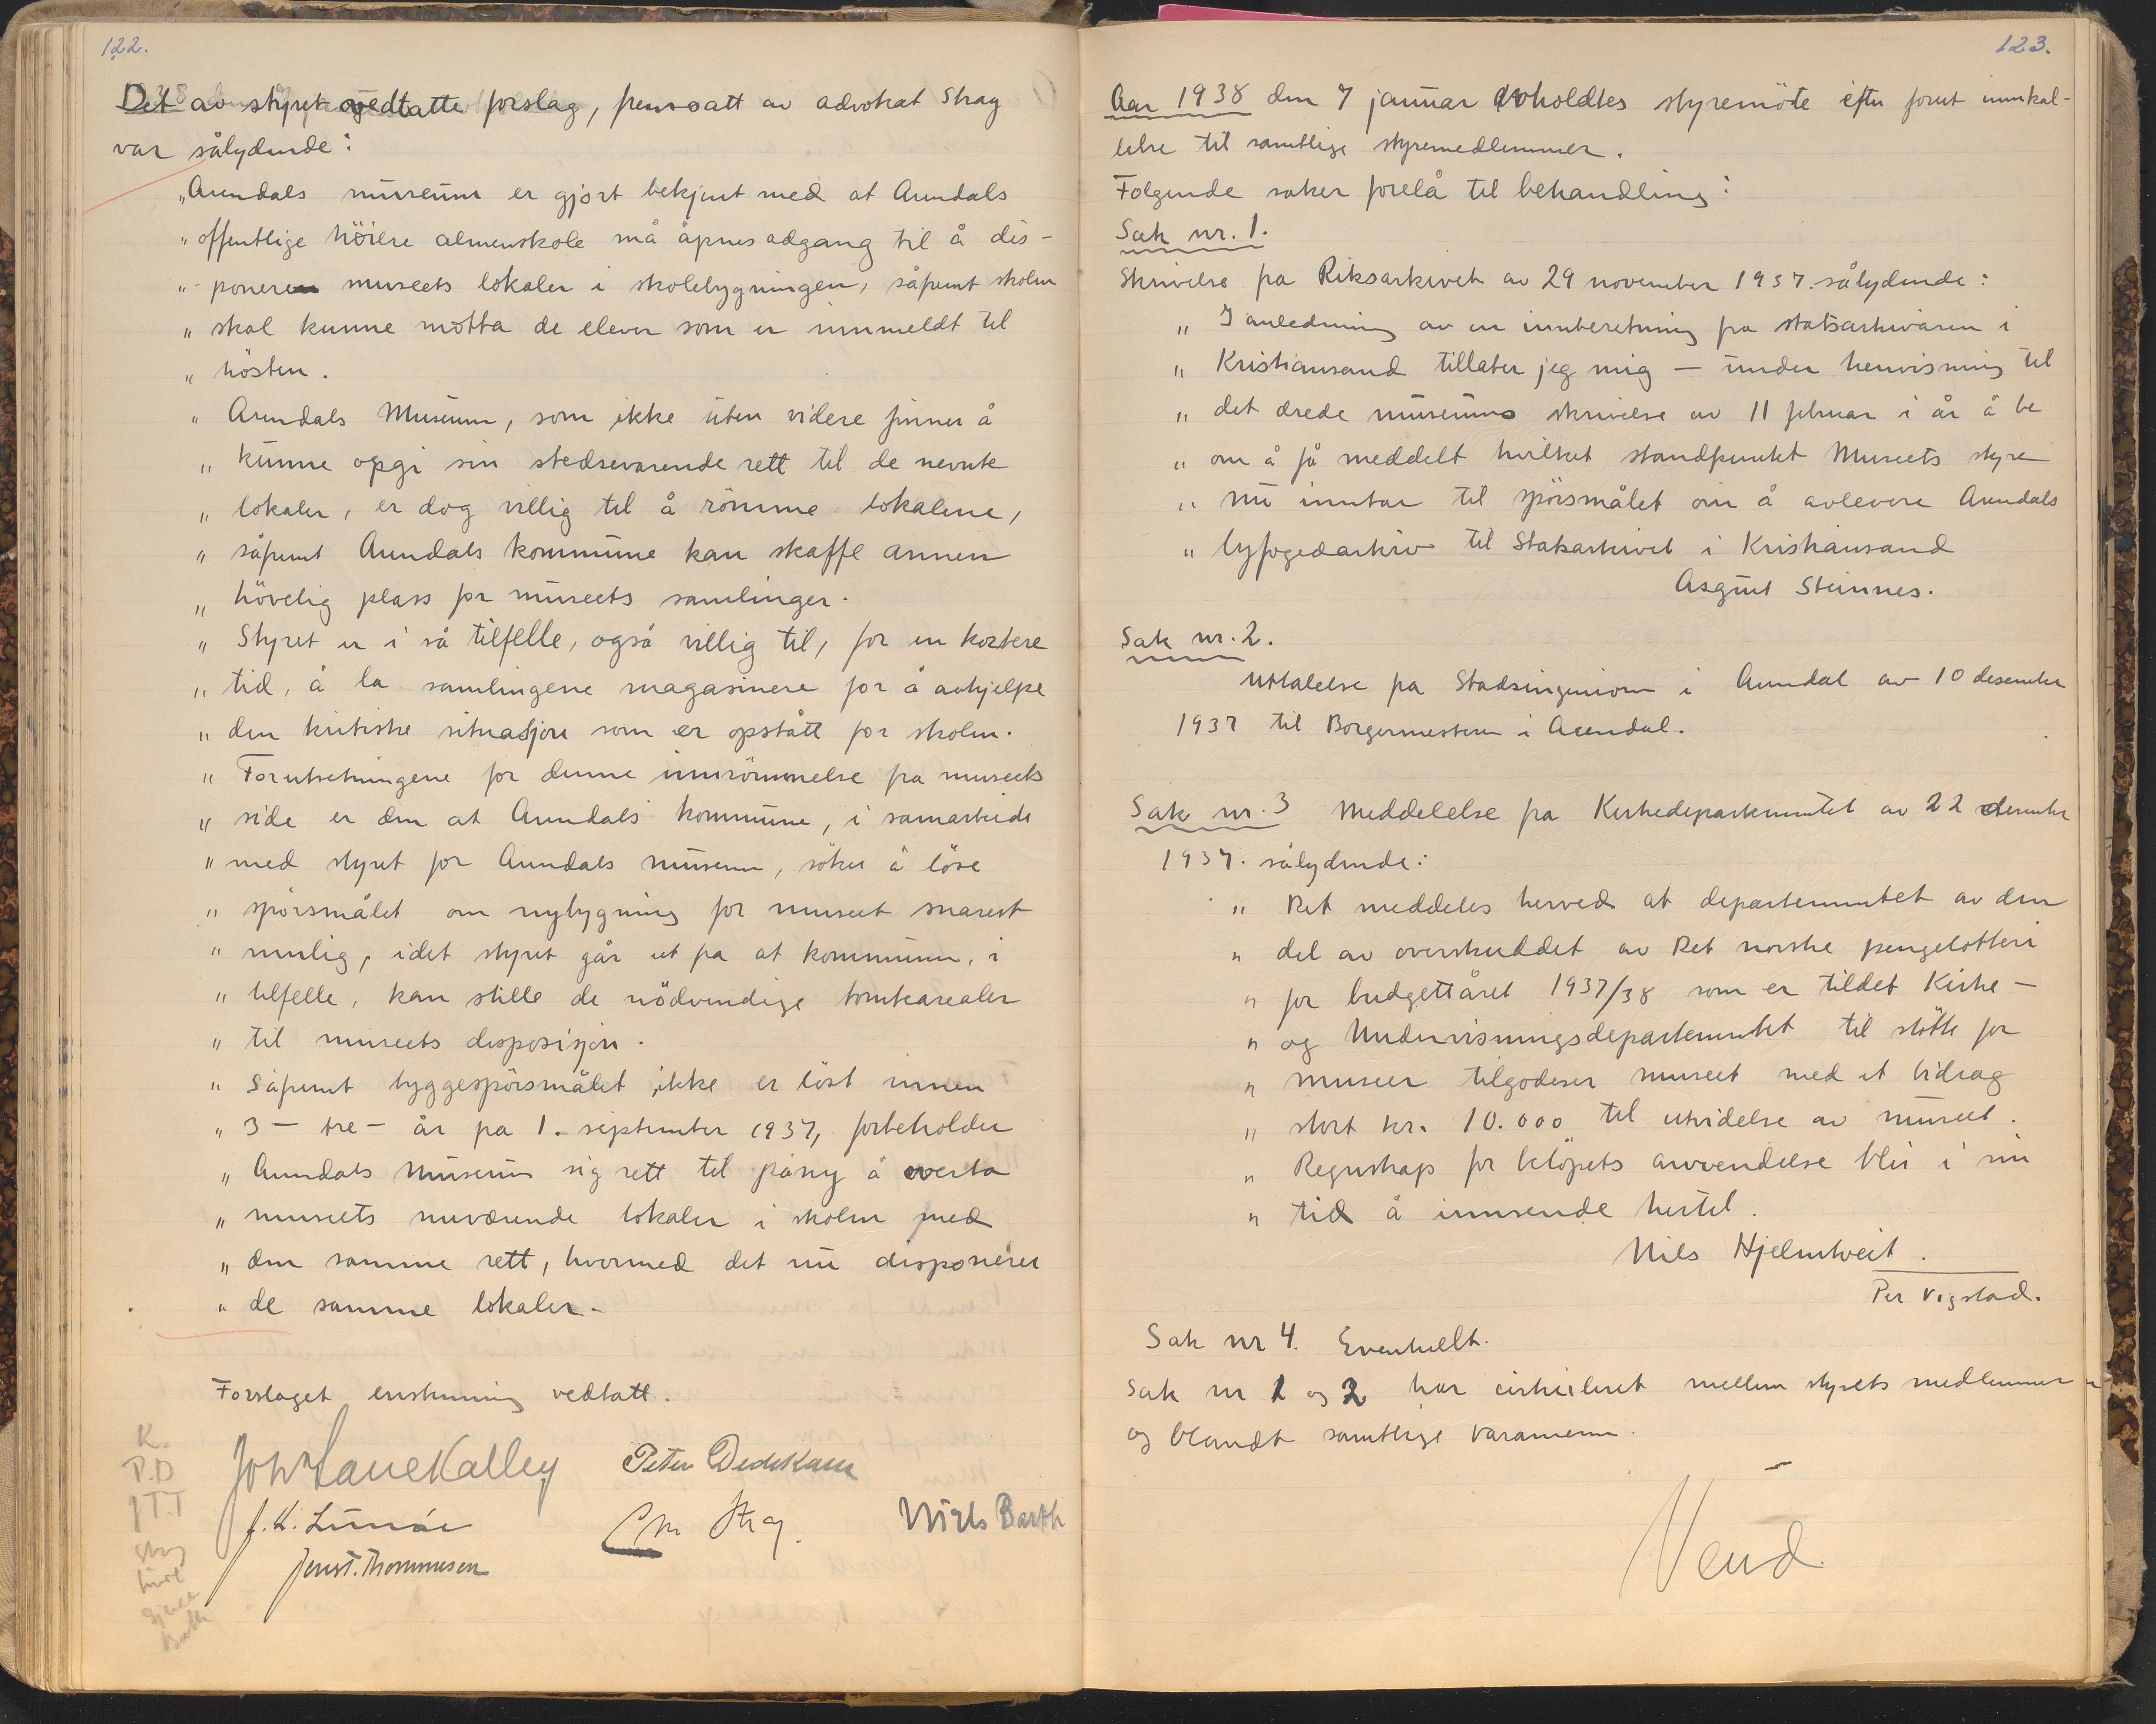 122.
Det av styret vedtatte forslag, fremsatt av advokat Stray
var sålydende:
„Arendals museum er gjort bekjent med at Arendals
„ offentlige höiere almenskole må åpnes adgang til å dis-
„ ponere museets lokaler i skolebygningen, såfremt skolen
„ skal kunne motta de elever som er innmeldt til
„ hösten.
„ Arendals Museum, som ikke uten videre finner å
„ kunne opgi sin stedsevarende rett til de nevnte
„ lokaler, er dog villig til å römme lokalene,
„ såfremt Arendals kommune kan skaffe annen
„ hövelig plass for museets samlinger.
„ Styret er i så tilfelle, også villig til, for en kortere
„ tid, å la samlingene magasinere for å avhjelpe
„ den kritiske situasjon som er opstått for skolen.
„ Forutsetningene for denne innrömmelse fra museets
„ side er den at Arendals kommune, i samarbeide
„ med styret for Arendals museum, söker å löse
„ spörsmålet om nybygning for museet snarest
„ mulig, idet styret går ut fra at kommunen, i
„ tilfelle, kan stille de nödvendige tomtearealer
„ til museets disposisjon.
„ Såfremt byggespörsmålet ikke er löst innen
„ 3 - tre - år fra 1. september 1937, forbeholder
„ Arendals Museum sig rett til påny å overta
„ museets nuværende lokaler i skolen med
„ den samme rett, hvormed det nu disponerer
„ de samme lokaler.
Forslaget enstemmig vedtatt.
K.
P.D
JTT
Stray
Joh Lane Kalley Peter Dedekam
J. K. Lunöe Chr Stray. Niels Barth
Jens T. Thommesen
123.
Aar 1938 den 7 januar avholdtes styremöte efter forut innkal-
lelse til samtlige styremedlemmer.
Folgende saker forelå til behandling:
Sak nr. 1.
Skrivelse fra Riksarkivet av 29 november 1937. sålydende:
„ I anledning av en innberetning fra statsarkivaren i
„ Kristiansand tillater jeg mig – under henvisning til
„ det ærede museums skrivelse av 11 februar i år å be
„ om å få meddelt hvilket standpunkt Museets styre
„ nu inntar til spörsmålet om å avlevere Arendals
„ byfogedarkiv til Statsarkivet i Kristiansand
Asgaut Steinnes.
Sak nr. 2.
Uttalelse fra Stadsingeniören i Arendal av 10 desember
1937 til Borgermesteren i Arendal.
Sak nr. 3 Meddelelse fra Kirkedepartementet av 22 desember
1937. sålydende:
„ Det meddeles herved at departementet av den
„ del av overskuddet av Det norske pengelotteri
„ for budgettåret 1937/38 som er tildelt Kirke-
„ og Undervisningsdepartementet til stötte for
„ museer tilgodeser museet med et bidrag
„ stort kr. 10.000 til utvidelse av museet.
„ Regnskap for belöpets anvendelse blir i sin
„ tid å innsende hertil.
Nils Hjelmtveit.
Per Vigstad.
Sak nr 4. Eventuelt.
Sak nr 1 og 2 har cirkuleret mellem styrets medlemmer
og blandt samtlige varamenn.
Vend